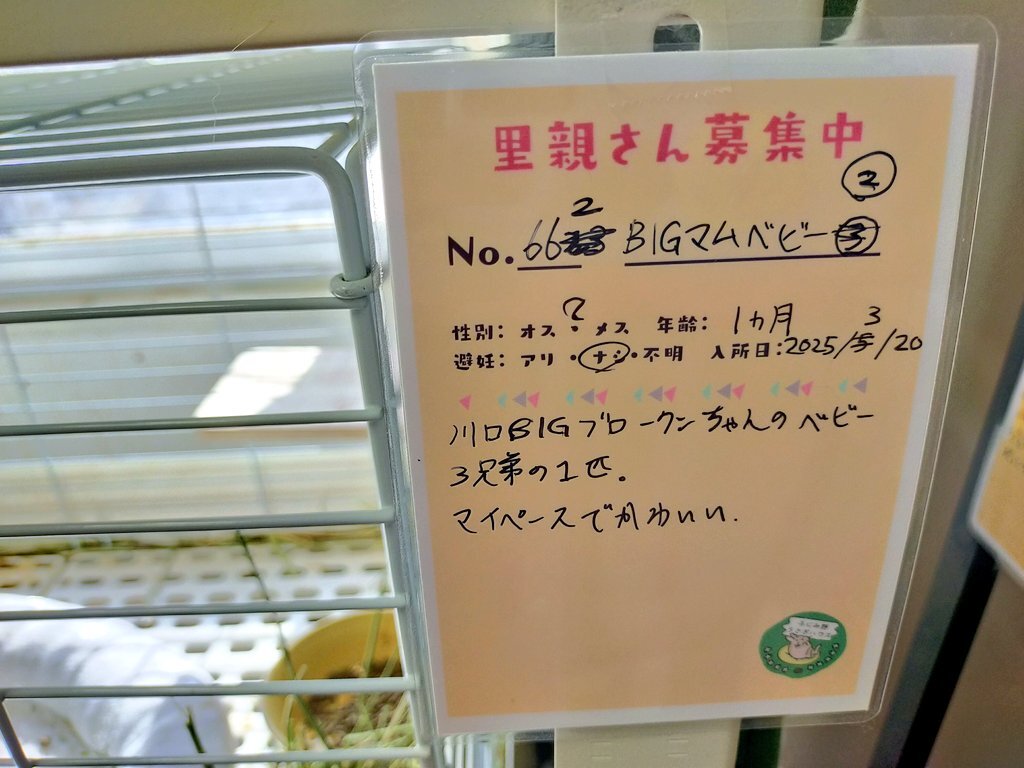 里親さん募集中
②
No. 662 BIGマムベビー
性別: オス ・ メス ? 年齢: 1ヵ月
避妊: アリ ・ ナシ ・ 不明 入所日: 2025/3/20
川口BIGブロークンちゃんのベビー
3兄弟の1匹。
マイペースでかわいい.